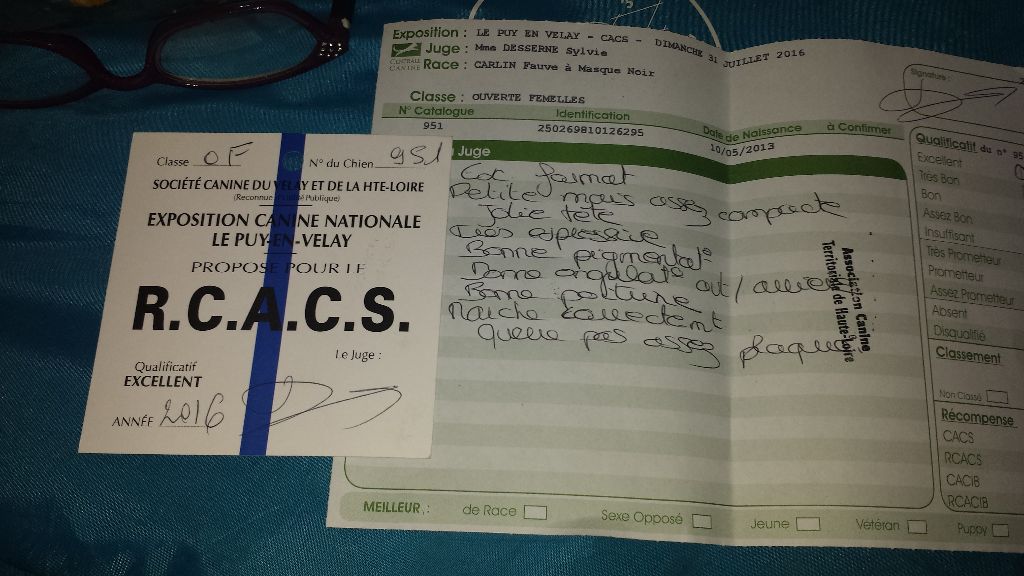 Exposition : LE PUY EN VELAY - CACS - DIMANCHE 31 JUILLET 2016
Juge : Mme DESSERNE Sylvie
CENTRALE CANINE
Race : CARLIN Fauve à Masque Noir
Signature :
Classe : OUVERTE FEMELLES
N° Catalogue Identification Date de Naissance à Confirmer
951 250269810126295 10/05/2013
Juge
format
Petite mais assez compacte
Jolie tête
Très expressive
Bonne pigmentat°
Bonne angulat° avt/arrière
Bonne poitrine
Marche correctement
Queue pas assez plaquée
Association Canine
Territoriale de Haute-Loire
Qualificatif du n° 95
Excellent
Très Bon
Bon
Assez Bon
Insuffisant
Très Prometteur
Prometteur
Assez Prometteur
Absent
Disqualifié
Classement
Non Classé
Récompense
CACS
RCACS
CACIB
RCACIB
MEILLEUR : de Race Sexe Opposé Jeune Vétéran Puppy
Classe OF N° du Chien 951
SOCIÉTÉ CANINE DU VELAY ET DE LA HTE-LOIRE
(Reconnue d'Utilité Publique)
EXPOSITION CANINE NATIONALE
LE PUY-EN-VELAY
PROPOSÉ POUR LE
R.C.A.C.S.
Le Juge :
Qualificatif
EXCELLENT
ANNÉE 2016